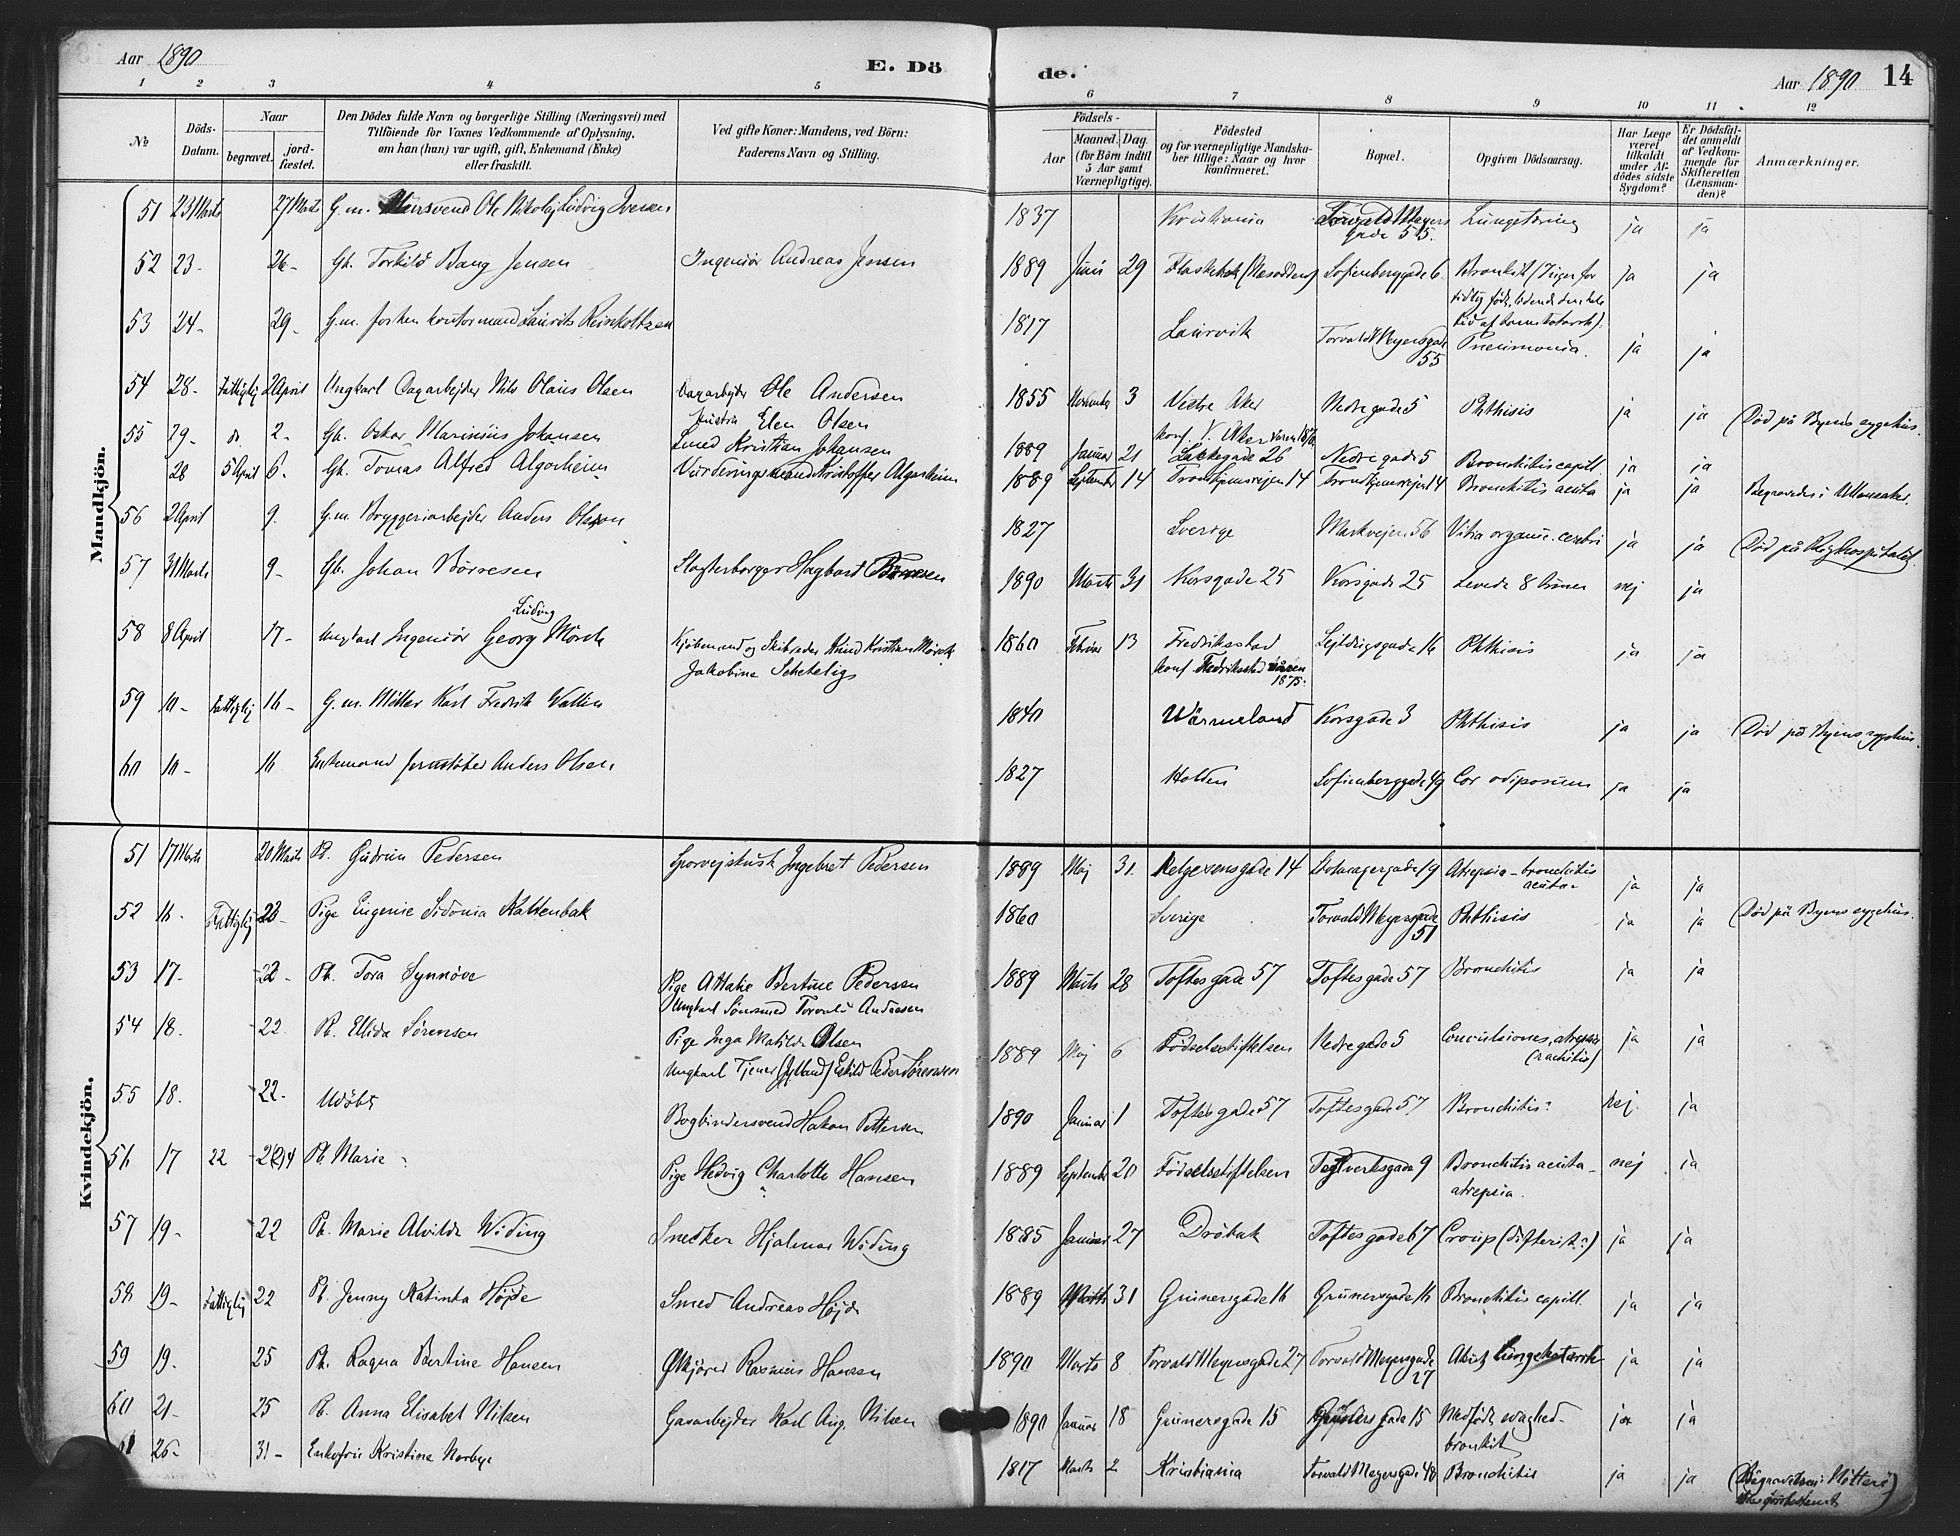 Aar 1890
E. Dö
de.
Aar 1890
14
1 2 3 4 5
6 7 8 9 10 11 12
No
Döds-Datum.
Naar
begravet.
jord-fæstet.
Den Dödes fulde Navn og borgerlige Stilling (Næringsvei) med
Tilföiende for Voxnes Vedkommende af Oplysning,
om han (hun) var ugift, gift, Enkemand (Enke)
eller fraskilt.
Ved gifte Koner: Mandens, ved Börn:
Faderens Navn og Stilling.
Födsels-
Aar
Maaned. Dag.
(for Börn indtil
5 Aar samt
Værnepligtige).
Födested
og for værnepligtige Mandska-
ber tillige: Naar og hvor
konfirmeret.
Bopæl.
Opgiven Dödsaarsag.
Har Læge
været
tilkaldt
under Af-
dödes sidste
Sygdom?
Er Dödsfal-
det anmeldt
af Vedkom-
mende for
Skifteretten
(Lensman-
den)?
Anmærkninger.
Mandkjön.
51 23 Marts 27 Marts G.m. Ole Nikolaj Ludvig Iversen 1837 Kristiania Torvald Meyers gade 55. Lungetæring ja ja
52 23- 26- Gh. Torkild Bang Jensen Ingeniör Andreas Jensen 1889 Juni 29 Flaskebek (Næsodden) Sofienberggade 6 Bronkit ja ja
53 24- 29- G.m. Laurits Reinholtzen 1817 Laurvik Torvald Meyersgade 55 Pneumonia. ja ja
54 28- Fattiglig 2 April Ungkarl Dagarbejder Nils Olaus Olsen Dagarbejder Ole Andersen
Elen Olsen 1855 November 3 Vestre Aker Nedregade 5 Phthisis ja ja (Död på Byens sygehus.
konf. V. Aker
55 29- do 2- Gh. Oskar Marinius Johansen Smed Kristian Johansen 1889 Januar 21 Lakkegade 26 Nedregade 5 Bronchitis capill. ja ja
28 5 April 6- Gh. Tomas Alfred Algarheim Kristoffer Algarheim 1889 September 14 Trondhjemsvejen 14 Trondhjemsvejen 14 Bronchitis acuta ja ja Begravedes i Ullensaker.
56 2 April 9. G.m. Bryggeriarbejder Anders Olsson 1827 Sverige Markvejen 56 Vitia organic. cerebri ja ja (Död på Rigshospitalet.
57 31 Marts 9- Gh. Johan Börresen Slagterborger Hagbart Börresen 1890 Marts 31 Korsgade 25 Korsgade 25 Levede 8 timer nej ja
58 8 April 17- Ungkarl Ingeniör Georg Ludvig Mörch Kjöbmand og Skibsreder Knud Kristian Mörch
Jakobine Schetelig 1860 Februar 13 Fredriksstad Sejldugsgade 16 Phthisis ja ja
konf. Fredriksstad våren 1875.
59 10- Fattiglig 16- G.m. Möller Karl Fredrik Wallin 1840 Wärmeland Korsgade 3 Phthisis ja ja (Död på Byens sygehus.
60 10- 16 Enkemand Jernstöber Anders Olsen 1827 Holden Sofienberggade 49 Cor adiposum ja ja
Kvindekjön.
51 17 Marts 20 Marts Pb. Gudrun Pedersen Sporvejskusk Ingebret Pedersen 1889 Maj 31. Helgesensgade 14 Stolmagergade 19 Atrepsia - bronchitis acuta ja ja
52 16- Fattiglig 22- Pige Eugenie Sidonia Kattenbak 1860 Sverige Torvald Meyersgade 51 Phthisis ja ja (Död på Byens sygehus.
53 17- 22- Pb. Tora Synnöve Pige Attalie Bertine Pedersen
Ungkarl Torvald Andresen 1889 Marts 28 Toftesgade 57 Toftesgade 57 Bronchitis ja ja
54 18. 22. Pb. Ellida Sörensen Pige Inga Matilde Olsen
Ungkarl Tjener (Jylland) Eskild Peder Sörensen 1889 Maj 6 Födselsstiftelsen Nedregade 5 Convulsiones, atrepsia (rachitis) ja ja
55 18. 22. Udöbt Bogbindersvend Hakon Pettersen 1890 Januar 1 Toftesgade 57 Toftesgade 57 Bronchitis? nej. ja
56 17 22 24 Pb. Marie Pige Hedvig Charlotte Hansen 1889 September 20 Födselsstiftelsen Teglverksgade 9 Bronchitis acuta - atrepsia. nej ja
57 19- 22 Pb. Marie Alvilde Widing Snedker Hjalmar Widing 1885 Januar 27 Dröbak Toftesgade 67 Croup (difterit?) ja ja
58 19- Fattiglig 22 Pb. Jenny Katinka Höjde Smed Andreas Höjde 1889 Marts 31 Grünersgade 16 Grünersgade 16 Bronchitis capill. ja ja
59 19. 25 Pb. Ragna Bertine Hansen Ölkjörer Rasmus Hansen 1890 Marts 8 Torvald Meyersgade 27 Torvald Meyersgade 27 Akut lungekatarrh ja ja
60 21- 25 Pb. Anna Elisabet Nilsen Gasarbejder Karl Aug. Nilsen 1890 Januar 18 Grünersgade 15 Grünersgade 15 Medfödt svaghed - bronkit ja ja
61 26- 31- Enkefru Kristine Norbye 1817 Marts 2 Kristiania Torvald Meyersgade 40 Bronchitis ja ja (Begravelsen i Nötterö